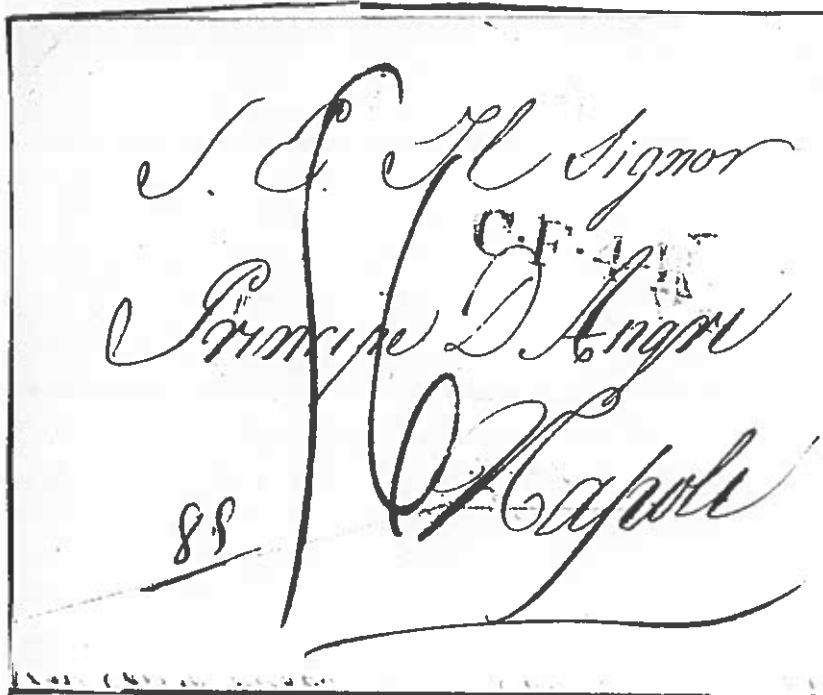 S. E. Il Signor
C.F.
Principe D'Angri
Napoli